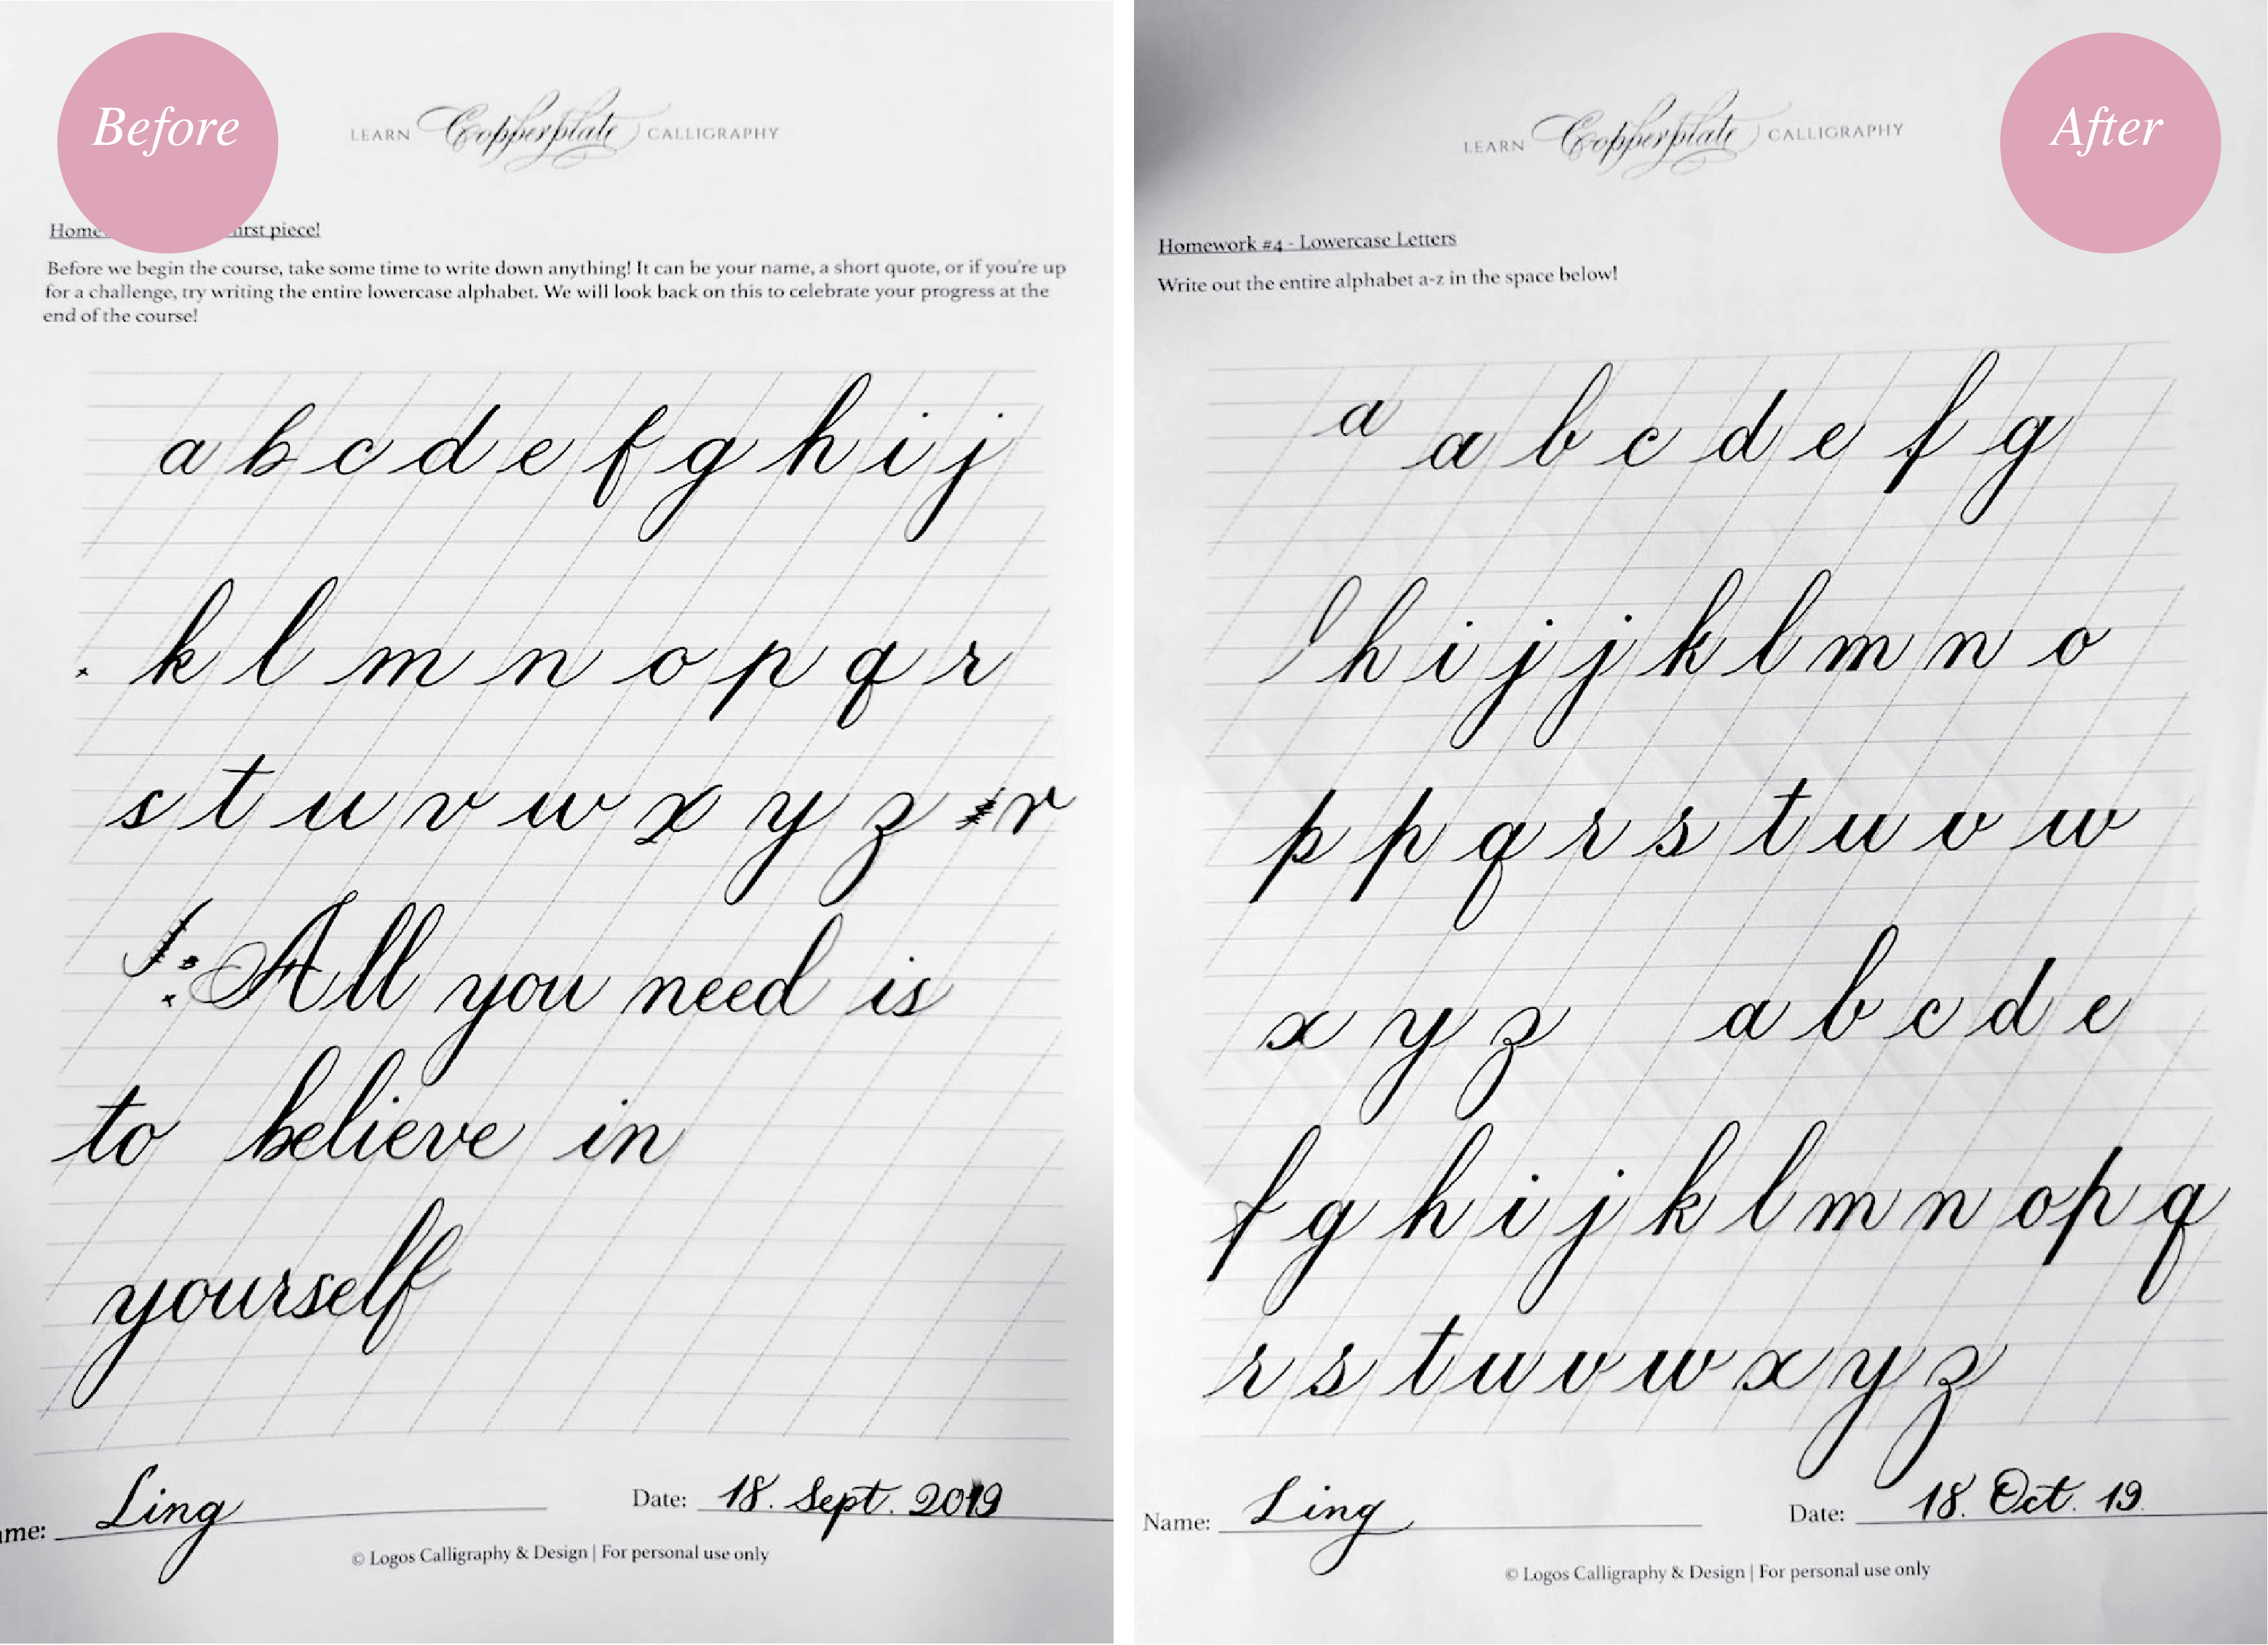 Before
LEARN Copperplate CALLIGRAPHY
Home irst piece!
Before we begin the course, take some time to write down anything! It can be your name, a short quote, or if you're up
for a challenge, try writing the entire lowercase alphabet. We will look back on this to celebrate your progress at the
end of the course!
a b c d e f g h i j
k l m n o p q r
s t u v w x y z r
All you need is
to believe in
yourself
ame: Ling Date: 18. Sept. 2019
© Logos Calligraphy & Design | For personal use only
After
LEARN Copperplate CALLIGRAPHY
Homework #4 - Lowercase Letters
Write out the entire alphabet a-z in the space below!
a a b c d e f g
h i j j k l m n o
p p q r s t u v w
x y z a b c d e
f g h i j k l m n o p q
r s t u v w x y z
Name: Ling Date: 18. Oct. 19
© Logos Calligraphy & Design | For personal use only